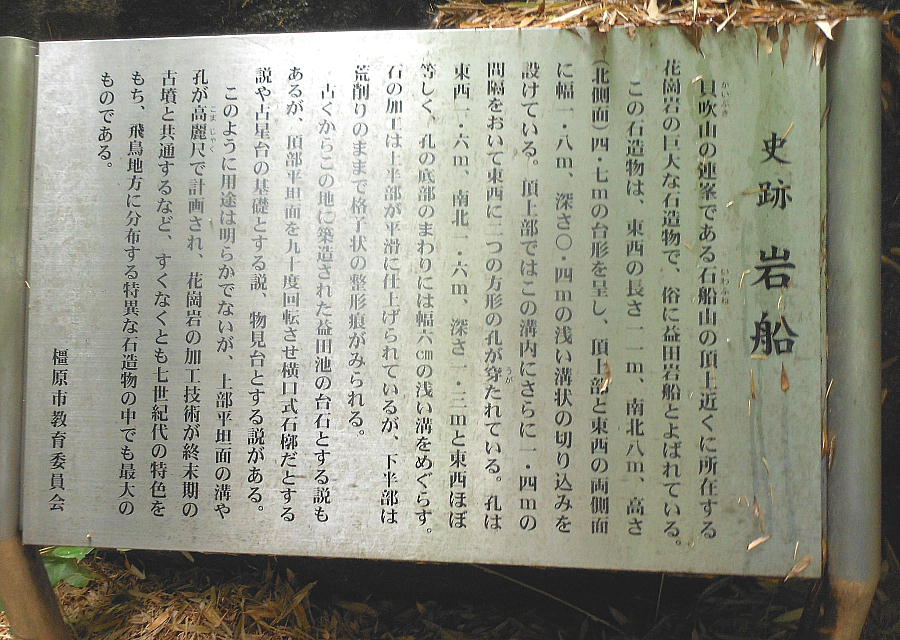 史跡 岩船
いわふね
貝吹山の連峯である石船山の頂上近くに所在する
かいふき
花崗岩の巨大な石造物で、俗に益田岩船とよばれている。
この石造物は、東西の長さ一一m、南北八m、高さ
(北側面)四・七mの台形を呈し、頂上部と東西の両側面
に幅一・八m、深さ〇・四mの浅い溝状の切り込みを
設けている。頂上部ではこの溝内にさらに一・四mの
間隔をおいて東西に二つの方形の孔が穿たれている。孔は
うが
東西一・六m、南北一・六m、深さ一・三mと東西ほぼ
等しく、孔の底部のまわりには幅六cmの浅い溝をめぐらす。
石の加工は上半部が平滑に仕上げられているが、下半部は
荒削りのままで格子状の整形痕がみられる。
古くからこの地に築造された益田池の台石とする説も
あるが、頂部平坦面を九十度回転させ横口式石槨だとする
説や占星台の基礎とする説、物見台とする説がある。
このように用途は明らかでないが、上部平坦面の溝や
孔が高麗尺で計画され、花崗岩の加工技術が終末期の
こまじゃく
古墳と共通するなど、すくなくとも七世紀代の特色を
もち、飛鳥地方に分布する特異な石造物の中でも最大の
ものである。
橿原市教育委員会